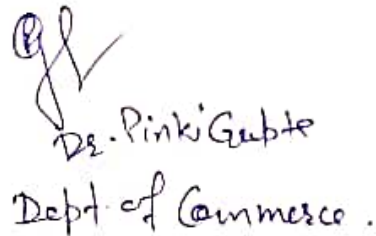 Dr. Pinki Gupta
Deptt. of Commerce.